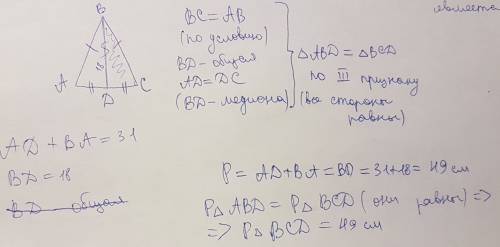 является
B
18
A
D
C
BC = AB
(по условию)
BD - общая
AD = DC
(BD - медиана)
△ABD = △BCD
по III признаку
(все стороны
равны)
AD + BA = 31
BD = 18
BD общая
P = AD + BA = BD = 31 + 18 = 49 см
P△ ABD = P△ BCD (они равны) =>
=> P△ BCD = 49 см